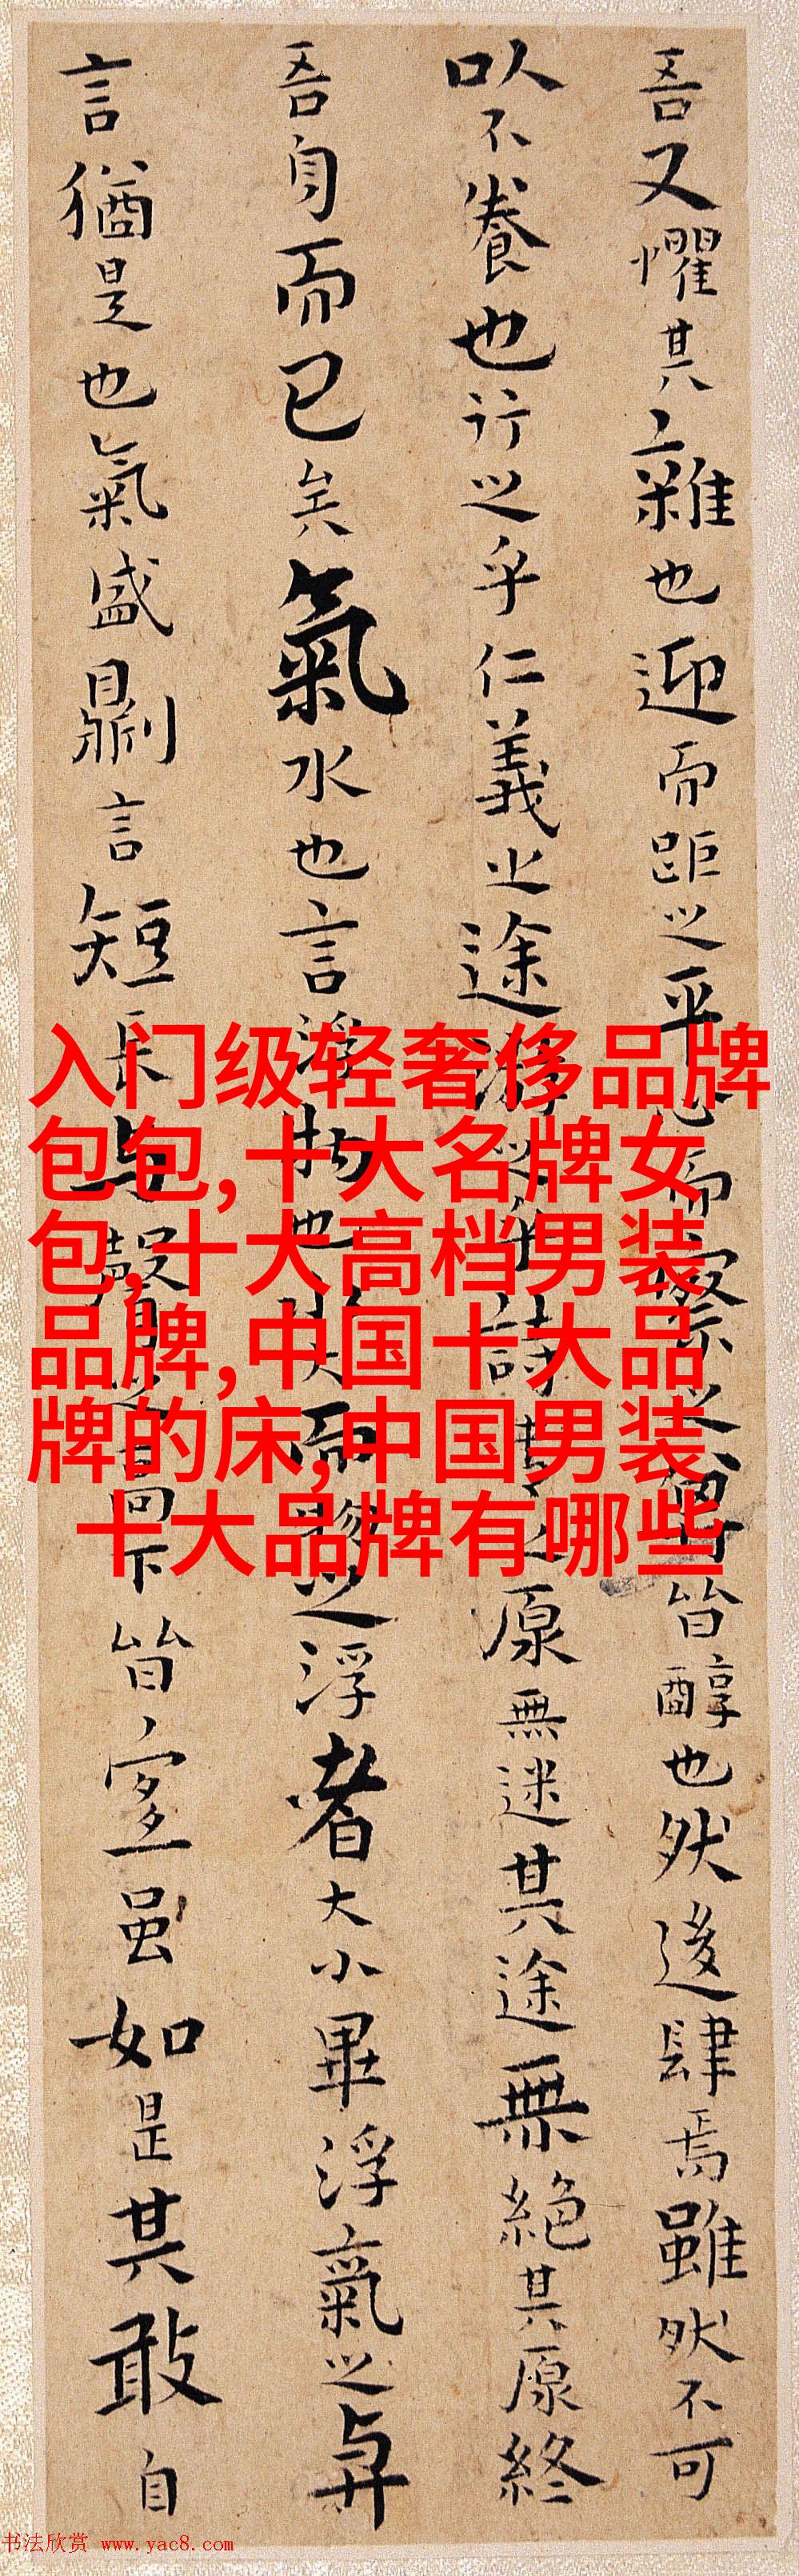 吾又懼其雜也迎而距之平心而察之其皆醇也然後肆焉雖然不可
以不養也行之乎仁義之途游之乎詩書之原無迷其途無絕其原終
吾身而已矣氣水也言浮物也水大而物之浮者大小畢浮氣之與
言猶是也氣盛則言短長與聲之高下皆宜雖如是其敢自
入门级轻奢侈品牌
包包,十大名牌女
包,十大高档男装
品牌,中国十大品
牌的床,中国男装
十大品牌有哪些
书法欣赏 www.yac8.com